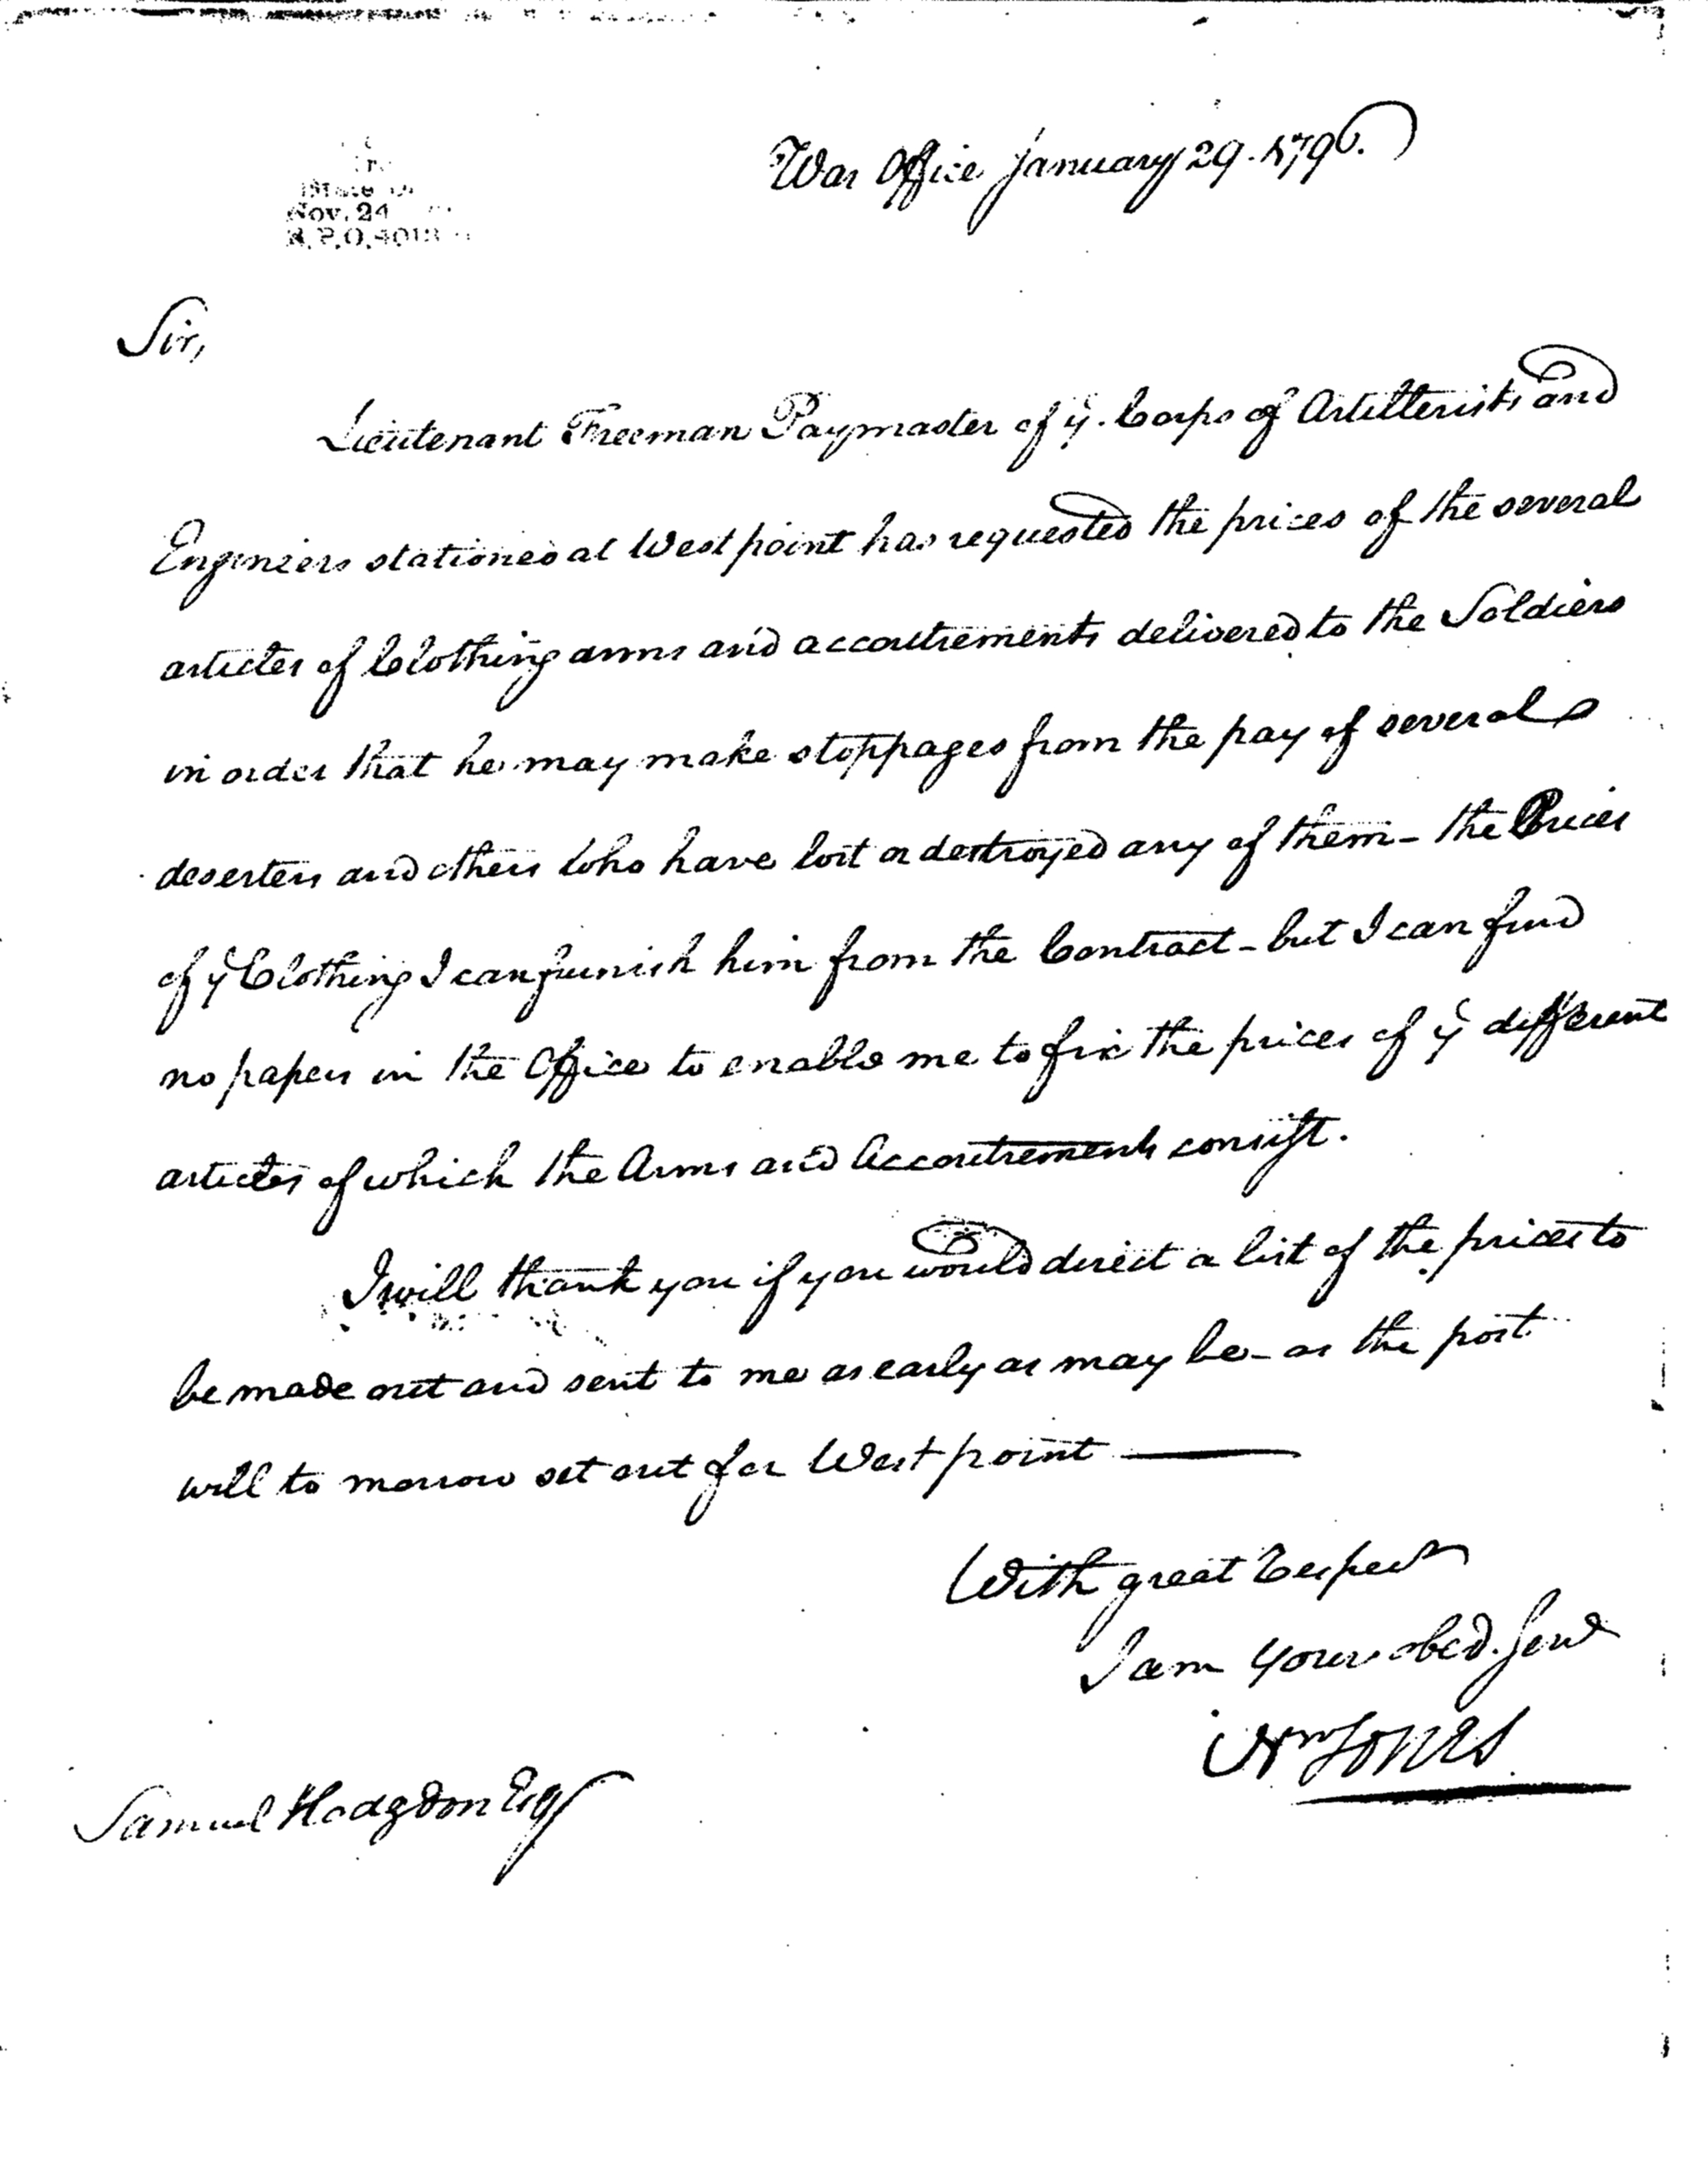 War Office January 29. 1796.
Nov. 24
Sir,
Lieutenant Freeman Paymaster of ye. Corps of Artillerists and
Engeniers stationed at West point has requested the prices of the several
articles of Clothing arms and accoutrements delivered to the Soldiers
in order that he may make stoppages from the pay of several
deserters and others who have lost or destroyed any of them - the Prices
of ye Clothing I can furnish him from the Contract - but I can find
no papers in the Office to enable me to fix the prices of ye different
articles of which the Arms and Accoutrements consist.
I will thank you if you would direct a list of the prices to
be made out and sent to me as early as may be - as the post
will to morrow set out for West point
With great Respect
I am your obed. Servt
Wm Jones
Samuel Hodgdon Esqr